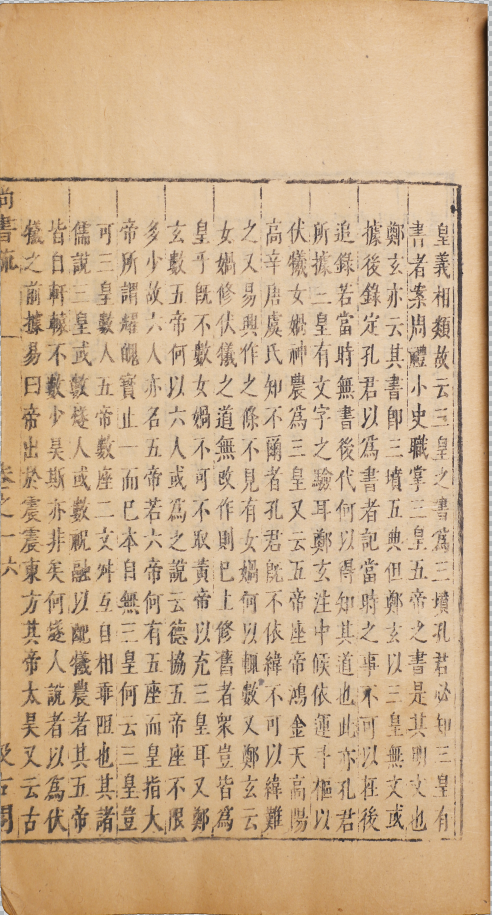 皇義相類故云三皇之書爲三墳孔君必知三皇有
書者案周禮小史職掌三皇五帝之書是其明文也
鄭玄亦云其書即三墳五典但鄭玄以三皇無文或
據後錄定孔君以爲書者記當時之事不可以在後
追錄若當時無書後代何以得知其道也此亦孔君
所據二皇有文字之驗耳鄭玄注中候依運斗樞以
伏犧女媧神農爲三皇又云五帝座帝鴻金天高陽
高辛唐虞氏知不爾者孔君旣不依緯不可以緯難
之又易興作之條不見有女媧何以輒數又鄭玄云
女媧修伏犧之道無改作則已上修舊者衆豈皆爲
皇乎旣不數女媧不可不取黃帝以充三皇耳又鄭
玄數五帝何以六人或爲之說云德協五帝座不限
多少故六人亦名五帝若六帝何有五座而皇指大
帝所謂耀魄寶止一而已本自無三皇何云三皇豈
可三皇數人五帝數座二文舛互自相乖阻也其諸
儒說三皇或數燧人或數祝融以配犧農者其五帝
皆自軒轅不數少昊斯亦非矣何燧人說者以爲伏
犧之前據易曰帝出於震震東方其帝太昊又云古
尚書疏 卷之一 六 汲古閣